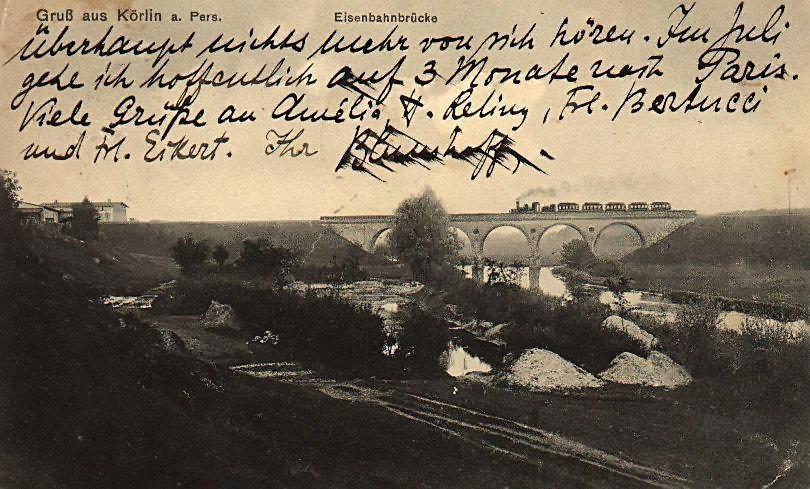 Gruß aus Körlin a. Pers. Eisenbahnbrücke
überhaupt nichts mehr von sich hören. Im Juli
gehe ich hoffentlich auf 3 Monate nach Paris.
Viele Grüße an Amélia, H. Reling, Frl. Bertucci
und Frl. Eikert. Ihr